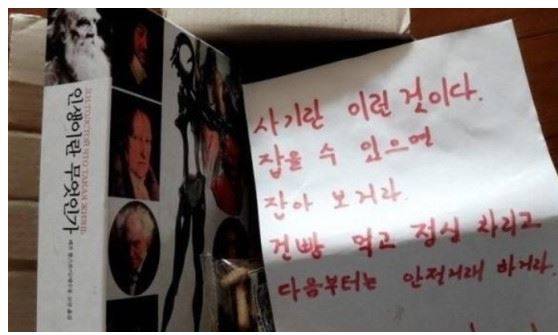 인생이란 무엇인가
사기란 이런 것이다.
잡을 수 있으면
잡아 보거라.
건빵 먹고 점심 차리고
다음부터는 안전거래 하거라.